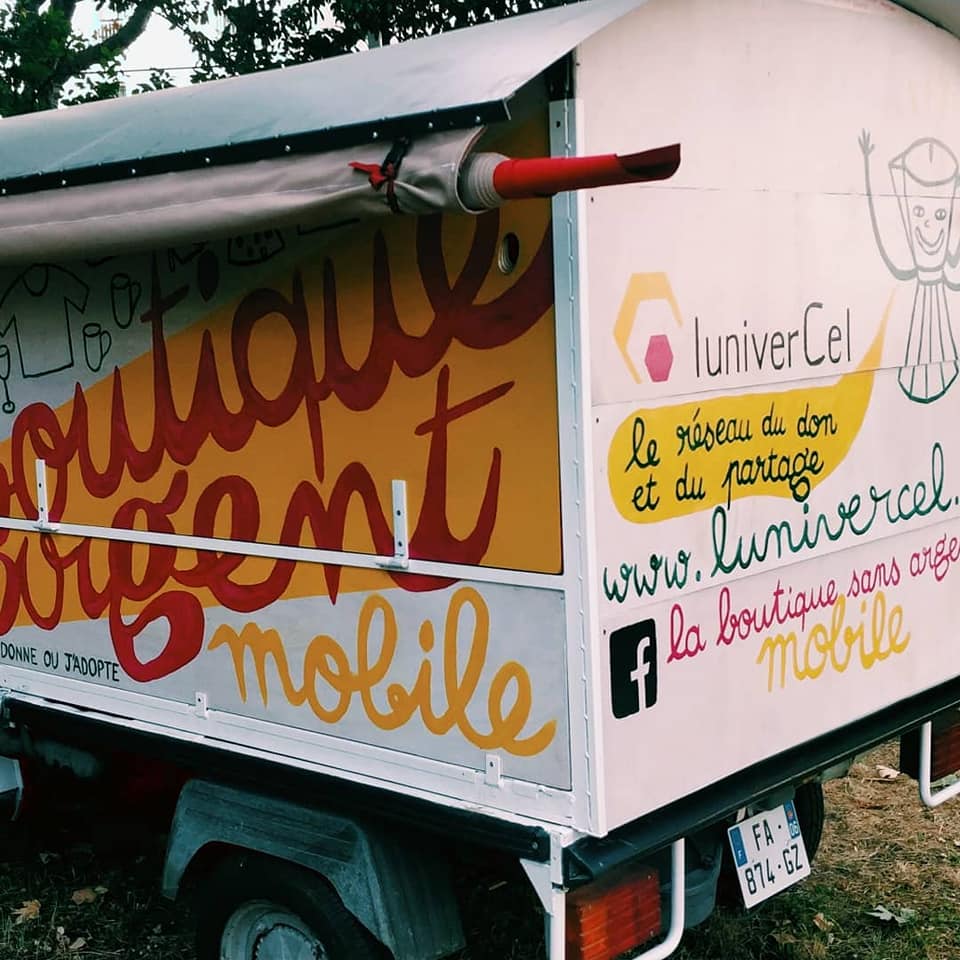 boutique
argent
mobile
DONNE OU J'ADOPTE
luniverCel
le réseau du don
et du partage
www.lunivercel.
la boutique sans arge
mobile
f
F
FA-
874-GZ
06